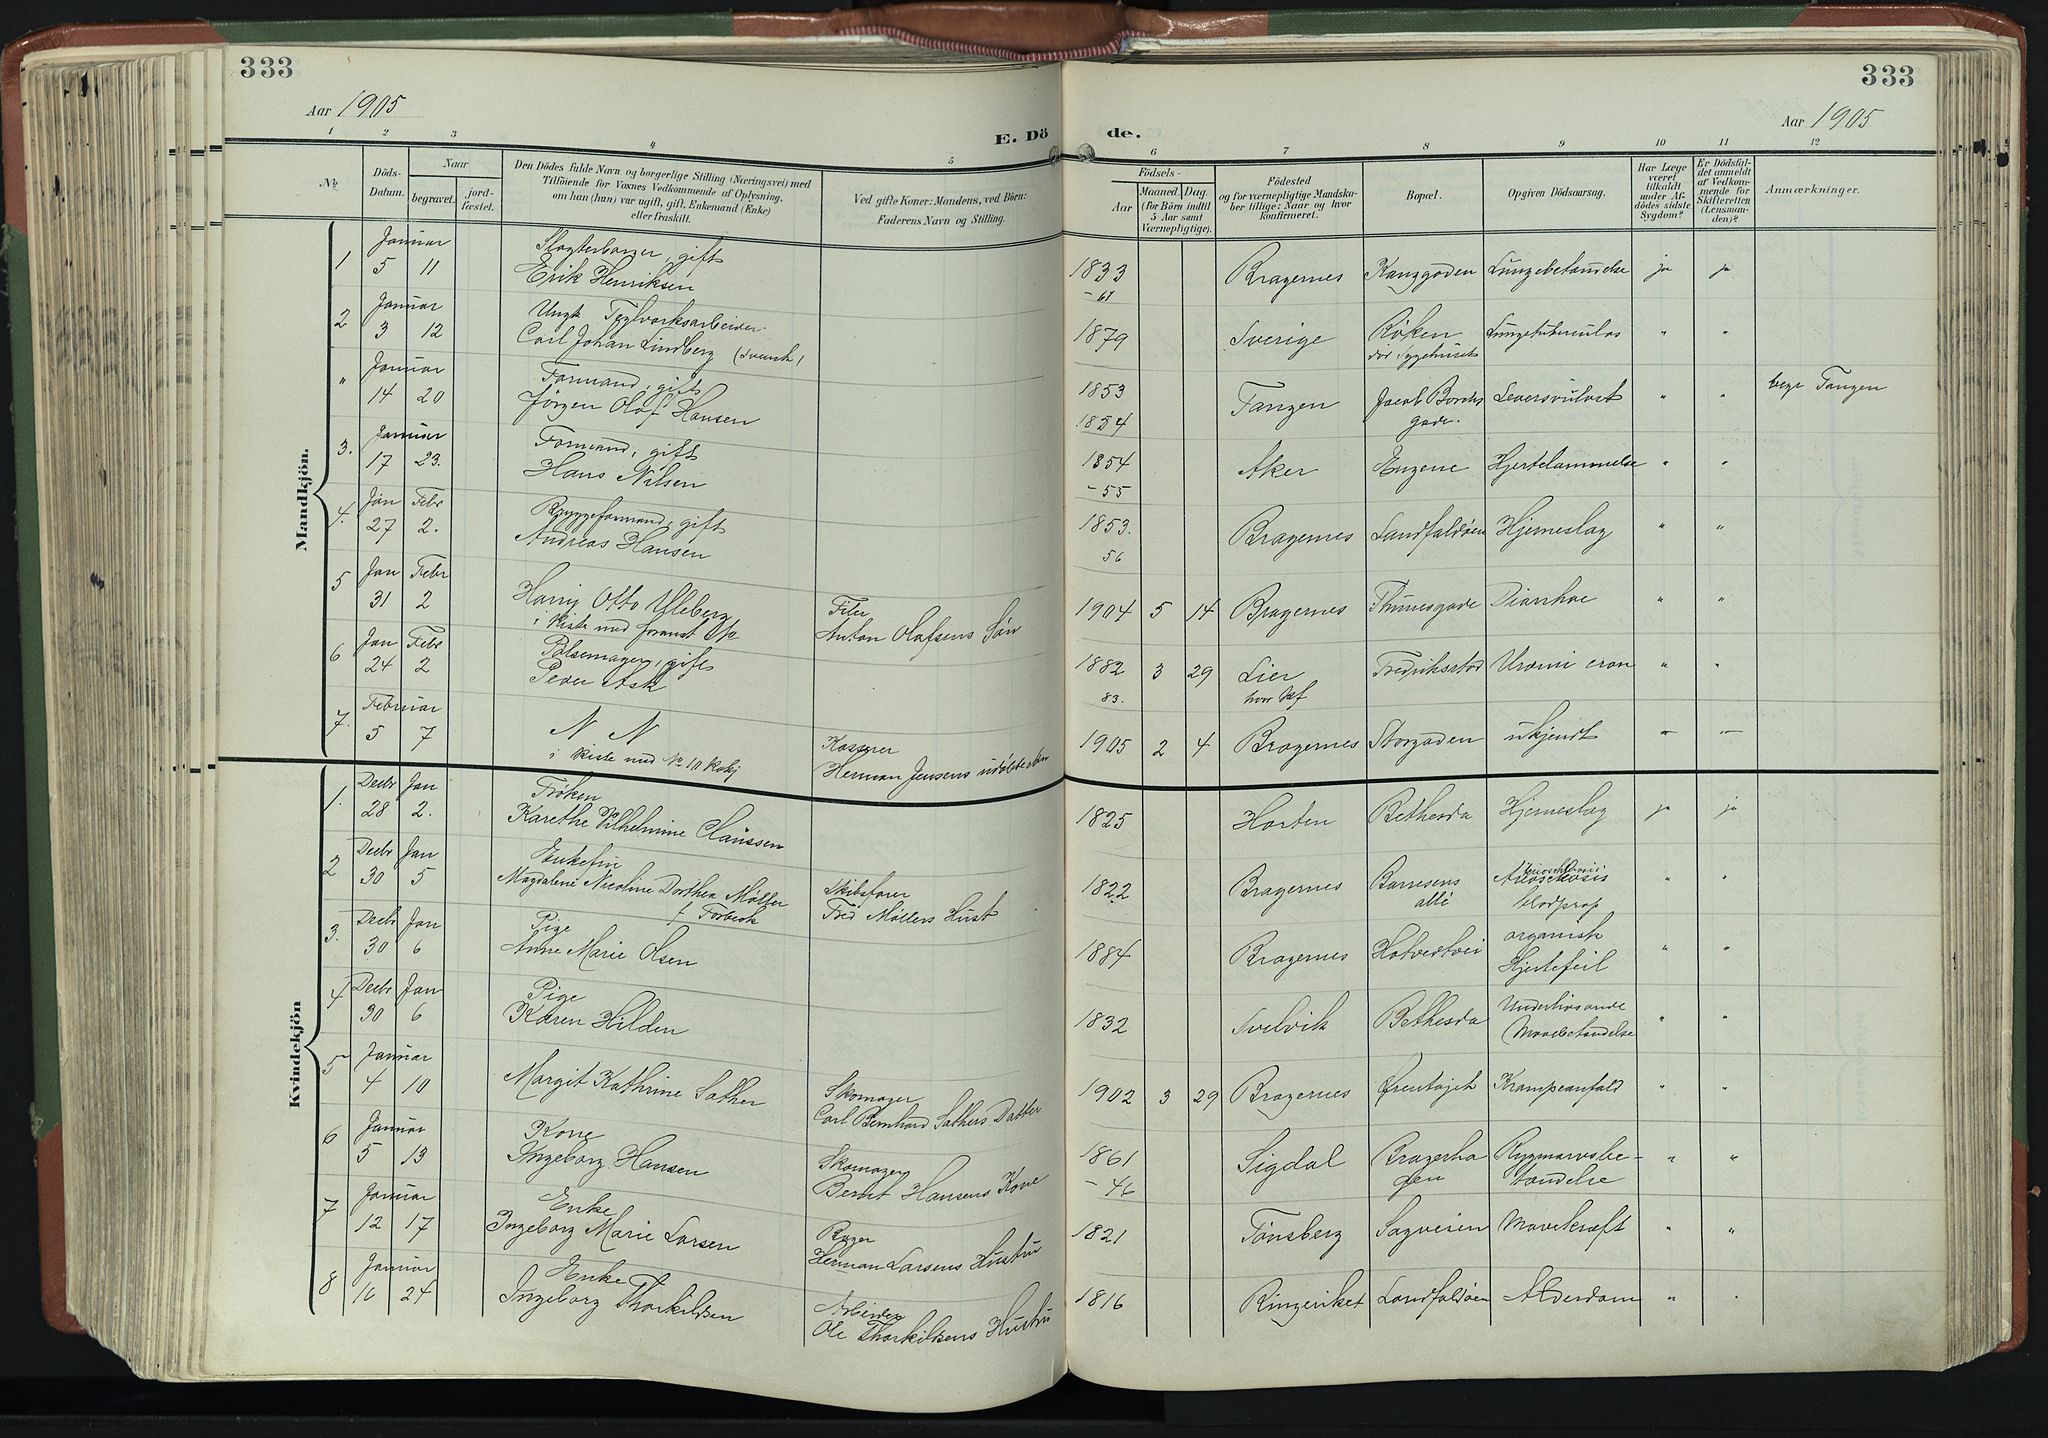 333
333
Aar 1905
Aar 1905
E. Dö
de.
1 2 3 4 5 6 7 8 9 10 11 12
No.
Döds-
Datum.
Naar
begravet.
jord-
fæstet.
Den Dödes fulde Navn og borgerlige Stilling (Næringsvei) med
Tilföiende for Voxnes Vedkommende af Oplysning,
om han (hun) var ugift, gift, Enkemand (Enke)
eller fraskilt.
Ved gifte Koner: Mandens, ved Börn:
Faderens Navn og Stilling.
Födsels-
Aar
Maaned. Dag.
(for Börn indtil
5 Aar samt
Værnepligtige).
Födested
og for værnepligtige Mandska-
ber tillige: Naar og hvor
konfirmeret.
Bopæl.
Opgiven Dödsaarsag.
Har Læge
været
tilkaldt
under Af-
dödes sidste
Sygdom?
Er Dödsfal-
det anmeldt
af Vedkom-
mende for
Skifteretten
(Lensman-
den)?
Anmærkninger.
Mandkjön.
1 Januar 5 11 Slagterborger, gift
Erik Henriksen 1833 Bragernes Lungebetændelse ja ja
- 61
2 Januar 3 12
Carl Johan Lindberg (svensk) 1879 Sverige Röken
Lungetuberculos " "
" Januar 14 20 Formand, gift
Jörgen Olaf Hansen 1853 Tangen Jacob Borchs
gade. " " begr Tangen
1854
3. Januar 17 23. Formand, gift
Hans Nilsen 1854 Aker Engene Hjertelammelse " "
- 55
4. Jan 27 Febr 2. Bryggeformand, gift
Andreas Hansen 1853. Bragernes Landfaldöen Hjerneslag " "
56
5 Jan 31 Febr 2 Harry Otto
i kiste med
Anton Olafsens Sön 1904 5 14 Bragernes Thurnesgade Diarrhoe " "
6 Jan 24 Febr 2 Pölsemager, gift
Peder Ask 1882 3 29 Lier Fredriksstad " "
83.
7. Februar 5 7 N N
i kiste med No
Kasserer
Herman Jensens 1905 2 4 Bragernes Storgaden ukjendt - -
Kvindekjön
1. Decbr 28 Jan 2. Fröken
Karethe Vilhelmine Claussen 1825 Horten Bethesda Hjerneslag ja ja
2 Decbr 30 Jan 5 Enkefru
Magdalene Nicoline Dorthea Möller
f Forbech
Skibsförer
Fred Möllers Hust 1822 Bragernes
allé " "
3. Decbr 30 Jan 6 Pige
Anne Marie Olsen 1884 Bragernes Hotvedtvei organisk
Hjertefeil " "
4 Decbr 30 Jan 6 Pige
Karen Hilden 1832 Svelvik Bethesda
" "
5 Januar 4 10 Margit Kathrine Sather
Skomager
Carl Bernhard Sathers Datter 1902 3 29 Bragernes Krampeanfald " "
6 Januar 5 13 Kone
Ingeborg Hansen
Skomager
Bernt Hansens Kone 1861 Sigdal Bragerha
gen Rygmarvsbe-
tændelse " "
- 46
7 Januar 12 17 Enke
Ingeborg Marie Larsen
Bager
Herman Larsens Hustru 1821 Tönsberg Sagveien Mavekræft " "
8 Januar 16 24 Enke
Ingeborg Thorkildsen
Arbeider
Ole Thorkildsens Hustru 1816 Ringeriket Landfaldöen Alderdom " "